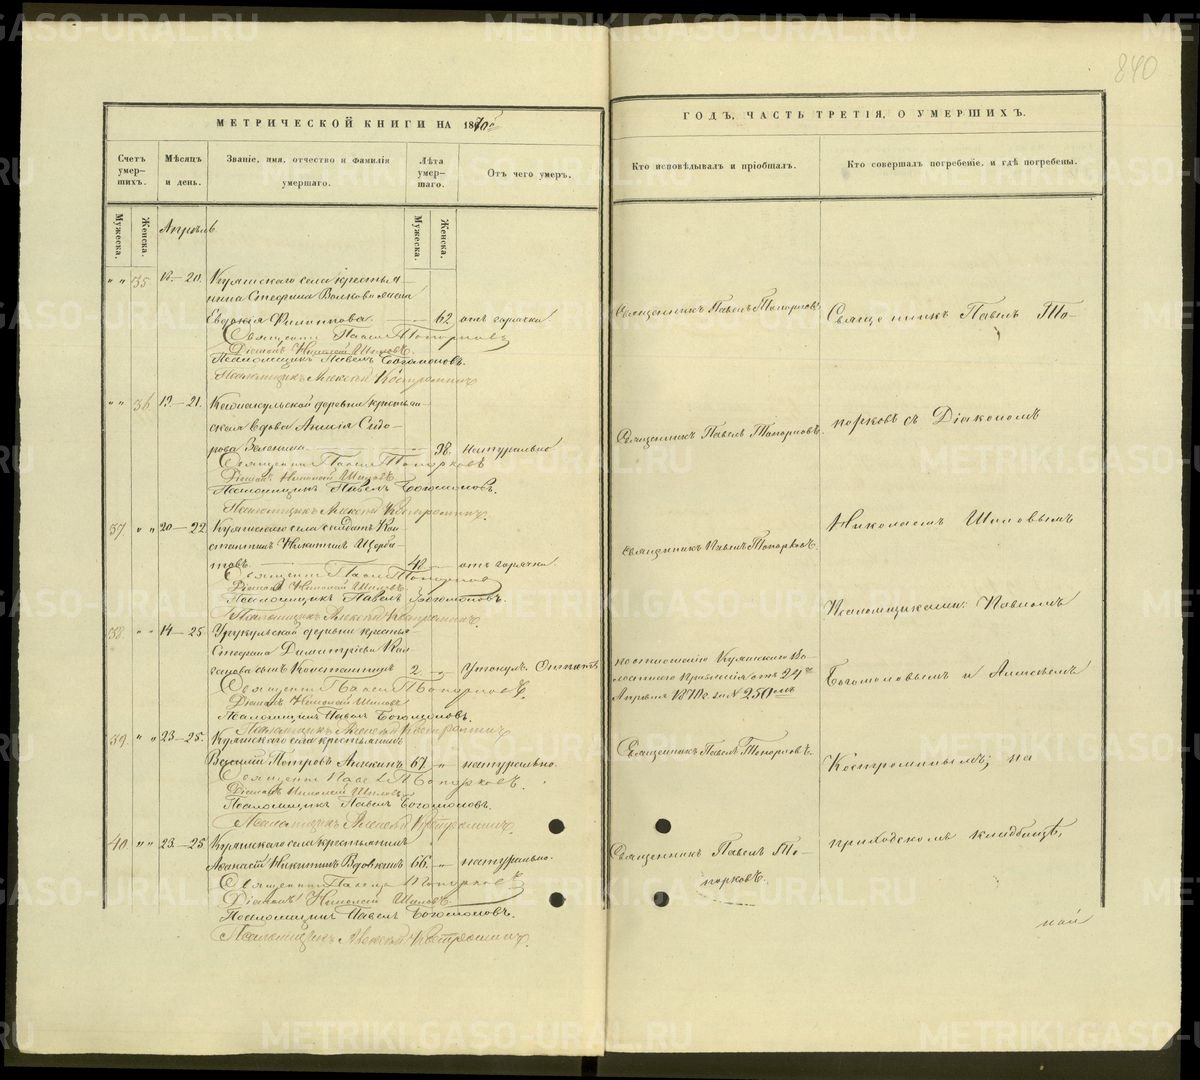 840
МЕТРИЧЕСКОЙ КНИГИ НА 1870й
ГОДЪ, ЧАСТЬ ТРЕТІЯ, О УМЕРШИХЪ.
Счетъ умер-шихъ.
Мѣсяцъ и день.
Званіе, имя, отчество и фамилія умершаго.
Лѣта умер-шаго.
Отъ чего умеръ.
Кто исповѣдывалъ и пріобщалъ.
Кто совершалъ погребеніе, и гдѣ погребены.
Мужеска.
Женска.
Апрѣль
Мужеска.
Женска.
" " 35 18.—20. Куяшскаго села крестья-
нина Стефана Волкова жена
Евдокія Филиппова — 62 отъ горячки
Священникъ Павелъ Топорковъ
Діаконъ Николай Шиловъ.
Псаломщикъ Павелъ Богомоловъ.
Псаломщикъ Алексѣй Костроминъ
Священникъ Павелъ Топорковъ
" " 36. 19.—21. деревни крестьян-
ская вдова Сидо-
рова Зеленина — натурально
Священникъ Павелъ Топорковъ
Діаконъ Николай Шиловъ
Псаломщикъ Павелъ Богомоловъ.
Псаломщикъ Алексѣй Костроминъ.
Священникъ Павелъ Топорковъ.
37 " " 20—22 Куяшскаго села солдатъ Кон-
стантинъ Никитинъ Щерба-
товъ. — отъ горячки.
Священникъ Павелъ Топорковъ
Діаконъ Николай Шиловъ.
Псаломщикъ Павелъ Богомоловъ.
Псаломщикъ Алексѣй Костроминъ.
Священникъ Павелъ Топорковъ.
38. " " 14—25. деревни кресть
Стефана Димитріева
сынъ Константинъ 2 — Утонулъ.
Священникъ Павелъ Топорковъ
Діаконъ Николай Шиловъ
Псаломщикъ Павелъ Богомоловъ.
Псаломщикъ Алексѣй Костроминъ
по отношенію Куяшскаго Во-
лостнаго Правленія отъ 24го
Апрѣля 1870 г. за № 250мъ
39. " " 23—25. Куяшскаго села крестьянинъ
Василій Петровъ 67 " натурально.
Священникъ Павелъ Топорковъ.
Діаконъ Николай Шиловъ
Псаломщикъ Павелъ Богомоловъ.
Псаломщикъ Алексѣй Костроминъ.
Священникъ Павелъ Топорковъ.
40. " " 23—25 Куяшскаго села крестьянинъ
Аѳанасій Никитинъ 66. " натурально.
Священникъ Павелъ Топорковъ
Діаконъ Николай Шиловъ.
Псаломщикъ Павелъ Богомоловъ.
Псаломщикъ Алексѣй Костроминъ.
Священникъ Павелъ То-
порковъ.
Священникъ Павелъ То-
порковъ съ Діакономъ
Николаемъ Шиловымъ
Псаломщиками: Павломъ
Богомоловымъ и Алексѣемъ
Костроминымъ; на
приходскомъ кладбищѣ,
METRIKI.GASO-URAL.RU